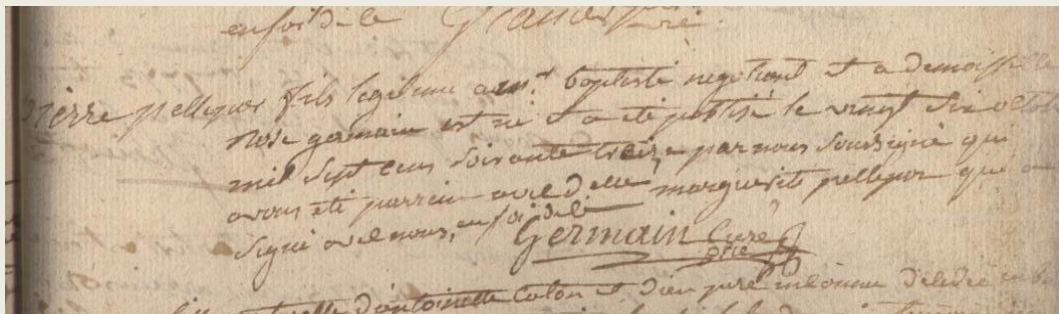 en foi de le
pierre pelleport fils legitime a mr. baptiste negotiant et a demoiselle
rose germain est né et a été patisé le vingt six octob
mil sept cens soixante treize par nous soussigné qui
avons été parrein avec delle marguerite pellepor qui a
signé avec nous, en foi de le
Germain curé
d'antoinette Colon et d'un pere inconnu